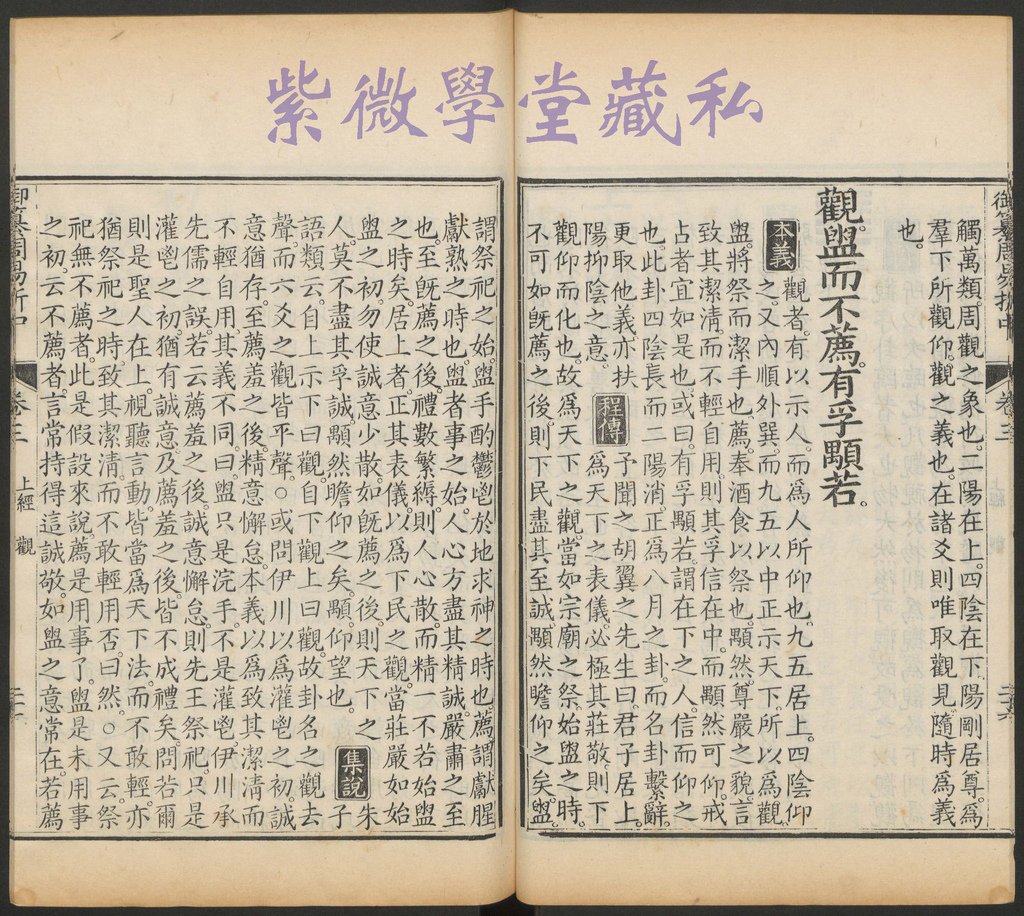 紫微學堂藏私
御纂周易折中 卷三 上經 觀 三六
觸萬類周觀之象也。二陽在上。四陰在下。陽剛居尊。爲
羣下所觀仰。觀之義也。在諸爻則唯取觀見。隨時爲義
也。
觀。盥而不薦。有孚顒若。
本義 觀者。有以示人。而爲人所仰也。九五居上。四陰仰
之。又內順外巽。而九五以中正示天下。所以爲觀。
盥。將祭而潔手也。薦。奉酒食以祭也。顒然。尊嚴之貌。言
致其潔清。而不輕自用。則其孚信在中。而顒然可仰。戒
占者宜如是也。或曰。有孚顒若。謂在下之人。信而仰之
也。此卦四陰長而二陽消。正爲八月之卦。而名卦繫辭。
更取他義。亦扶
陽抑陰之意。 程傳 予聞之胡翼之先生曰。君子居上。
爲天下之表儀。必極其莊敬。則下
觀仰而化也。故爲天下之觀。當如宗廟之祭。始盥之時。
不可如旣薦之後。則下民盡其至誠。顒然瞻仰之矣。盥。
謂祭祀之始。盥手酌鬱鬯於地。求神之時也。薦。謂獻腥
獻熟之時也。盥者事之始。人心方盡其精誠。嚴肅之至
也。至旣薦之後。禮數繁縟。則人心散。而精一不若始盥
之時矣。居上者。正其表儀。以爲下民之觀。當莊嚴如始
盥之初。勿使誠意少散。如旣薦之後。則天下之
人。莫不盡其孚誠。顒然瞻仰之矣。顒。仰望也。 集說 朱
子
語類云。自上示下曰觀。自下觀上曰觀。故卦名之觀去
聲。而六爻之觀皆平聲。○或問伊川以爲灌鬯之初。誠
意猶存。至薦羞之後。精意懈怠。本義以爲致其潔清而
不輕自用。其義不同。曰盥只是浣手。不是灌鬯。伊川承
先儒之誤。若云薦羞之後。誠意懈怠。則先王祭祀。只是
灌鬯之初。猶有誠意。及薦羞之後。皆不成禮矣。問若爾
則是聖人在上。視聽言動。皆當爲天下法。而不敢輕。亦
猶祭祀之時。致其潔清。而不敢輕用否。曰然。○又云。祭
祀無不薦者。此是假設來說。薦是用事了。盥是未用事
之初。云不薦者。言常持得這誠敬。如盥之意常在。若薦
御纂周易折中 卷三 上經 觀